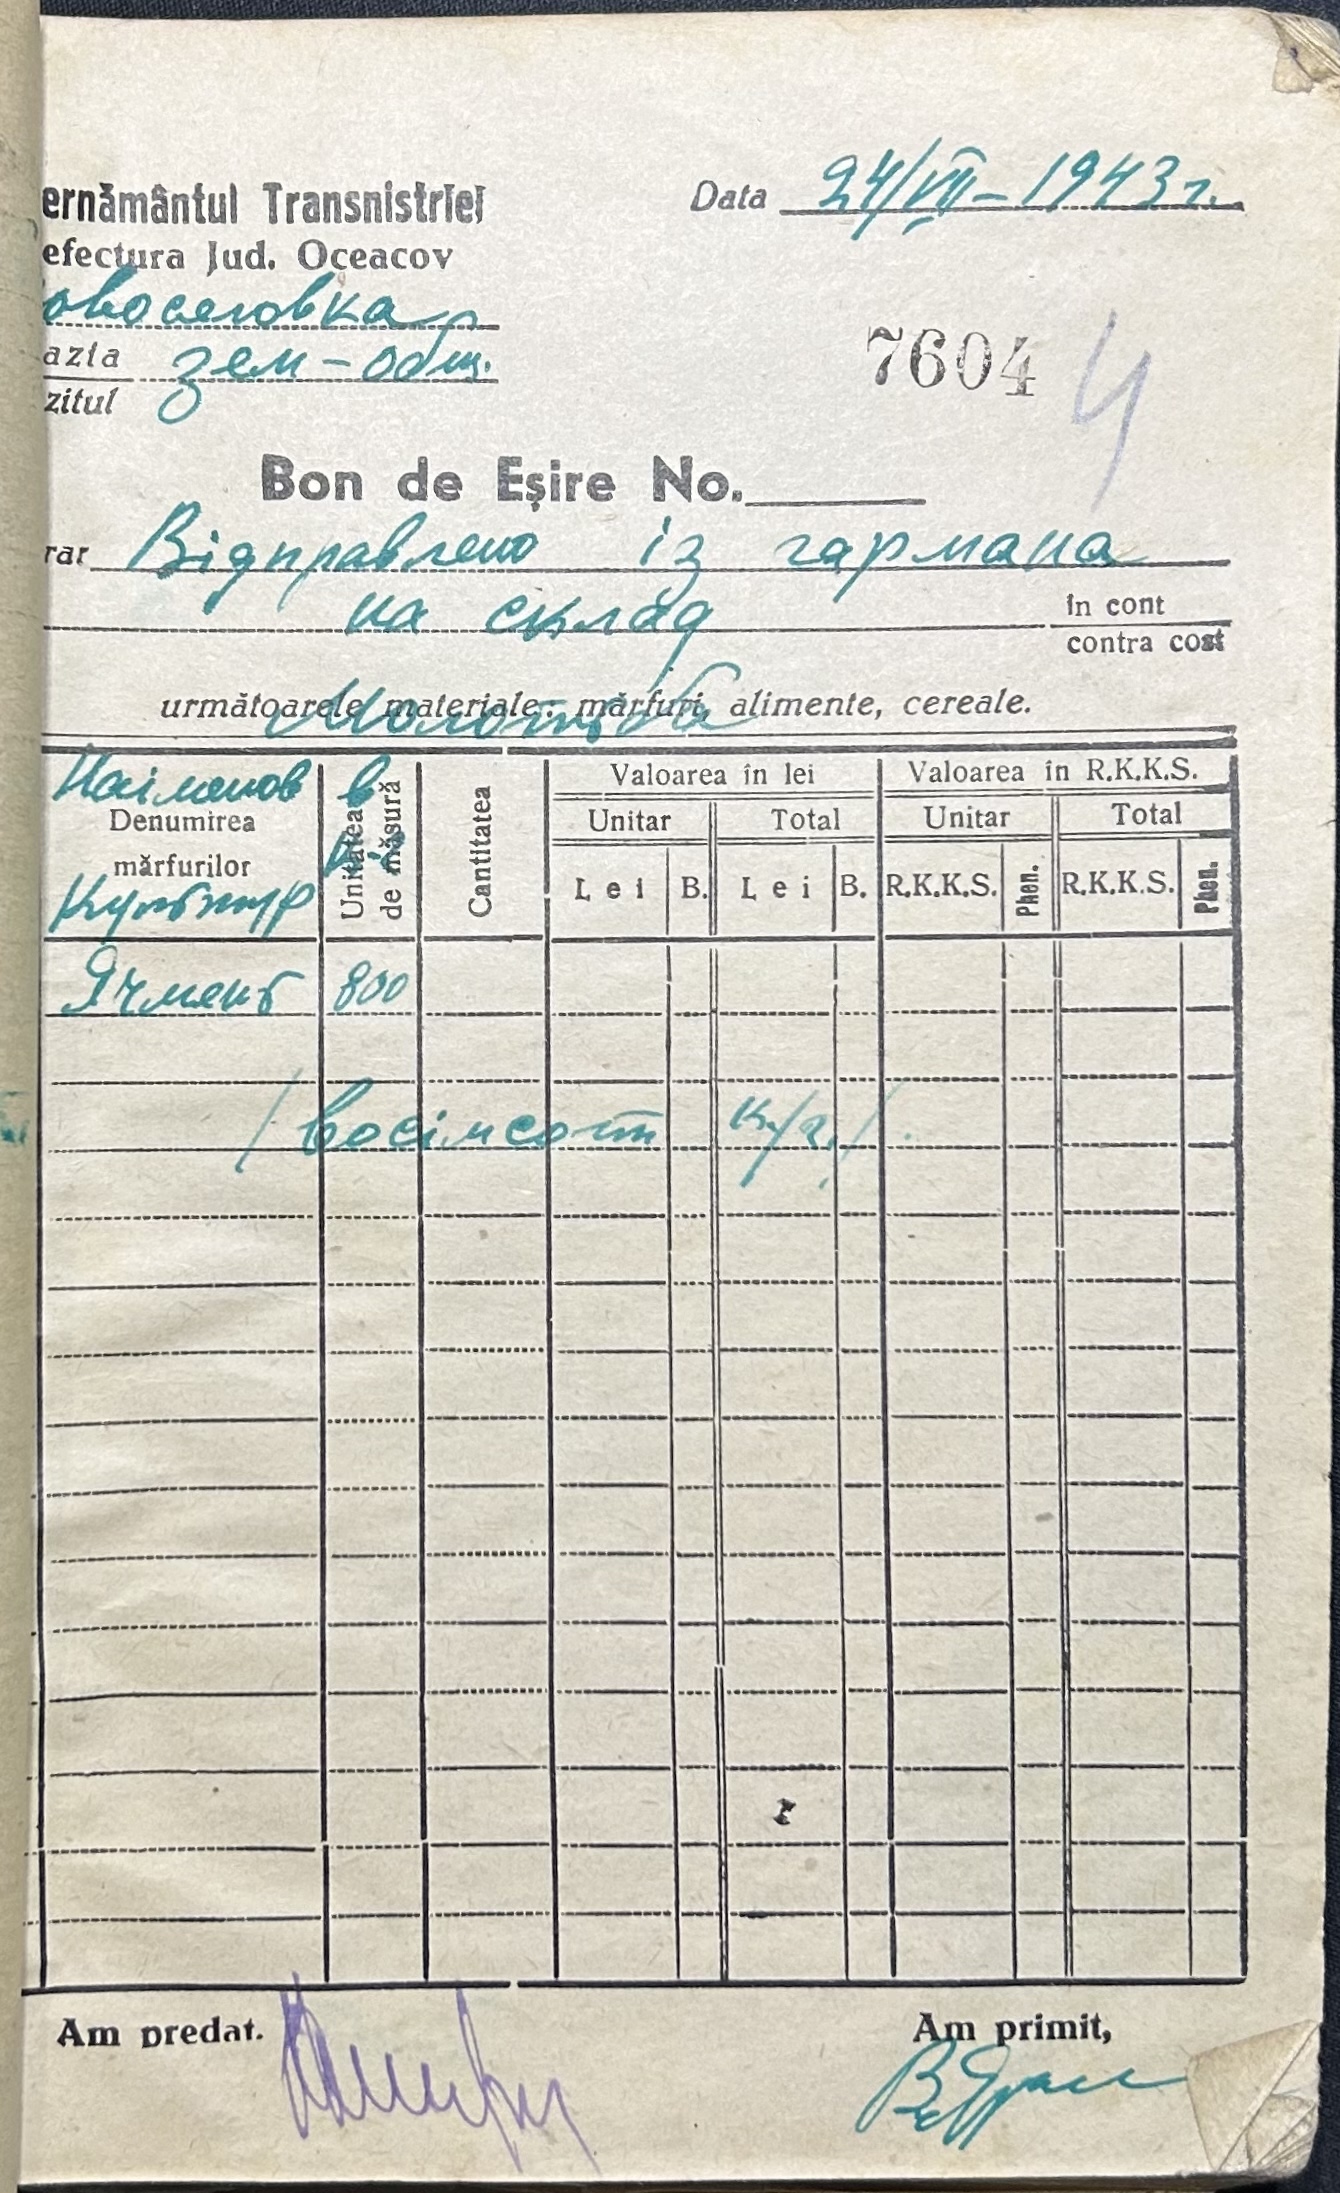 ernământul Transnistriei
Data 24/VII – 1943 г.
efectura Jud. Oceacov
овоселовка
azia зем – общ.
zitul
7604 4
Bon de Eșire No.
rar Відправлено із гармана
на склад
în cont
contra cost
următoarele materiale: mărfuri, alimente, cereale.
Молотьба
Наіменов в
Denumirea mărfurilor
Культур
Unitatea de măsură
к.г
Cantitatea
Valoarea în lei
Valoarea în R.K.K.S.
Unitar Total Unitar Total
Lei B. Lei B. R.K.K.S. Phen. R.K.K.S. Phen.
Ячмень 800
/ восімсот к/г. /
Am predat.
Am primit,